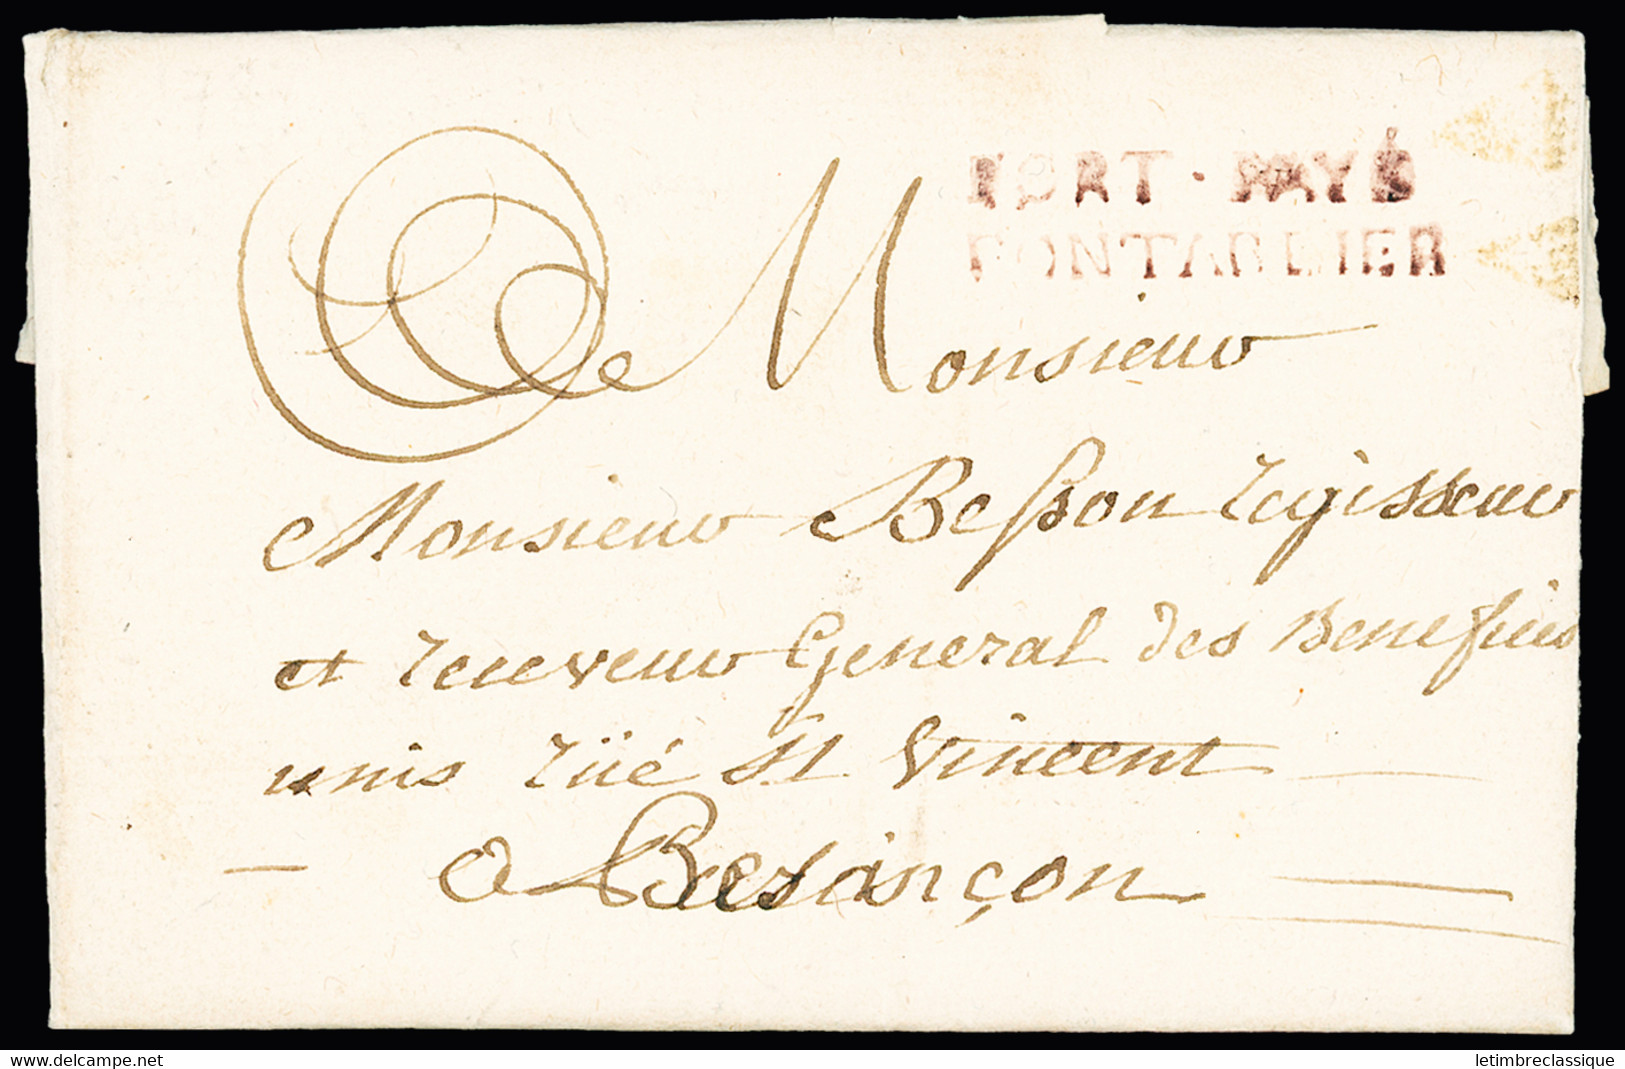 PORT·PAYÉ
PONTARLIER
A Monsieur
Monsieur Besson regisseur
et receveur General des Benefices
unis rüé St Vincent
a Besançon
www.delcampe.net
letimbreclassique